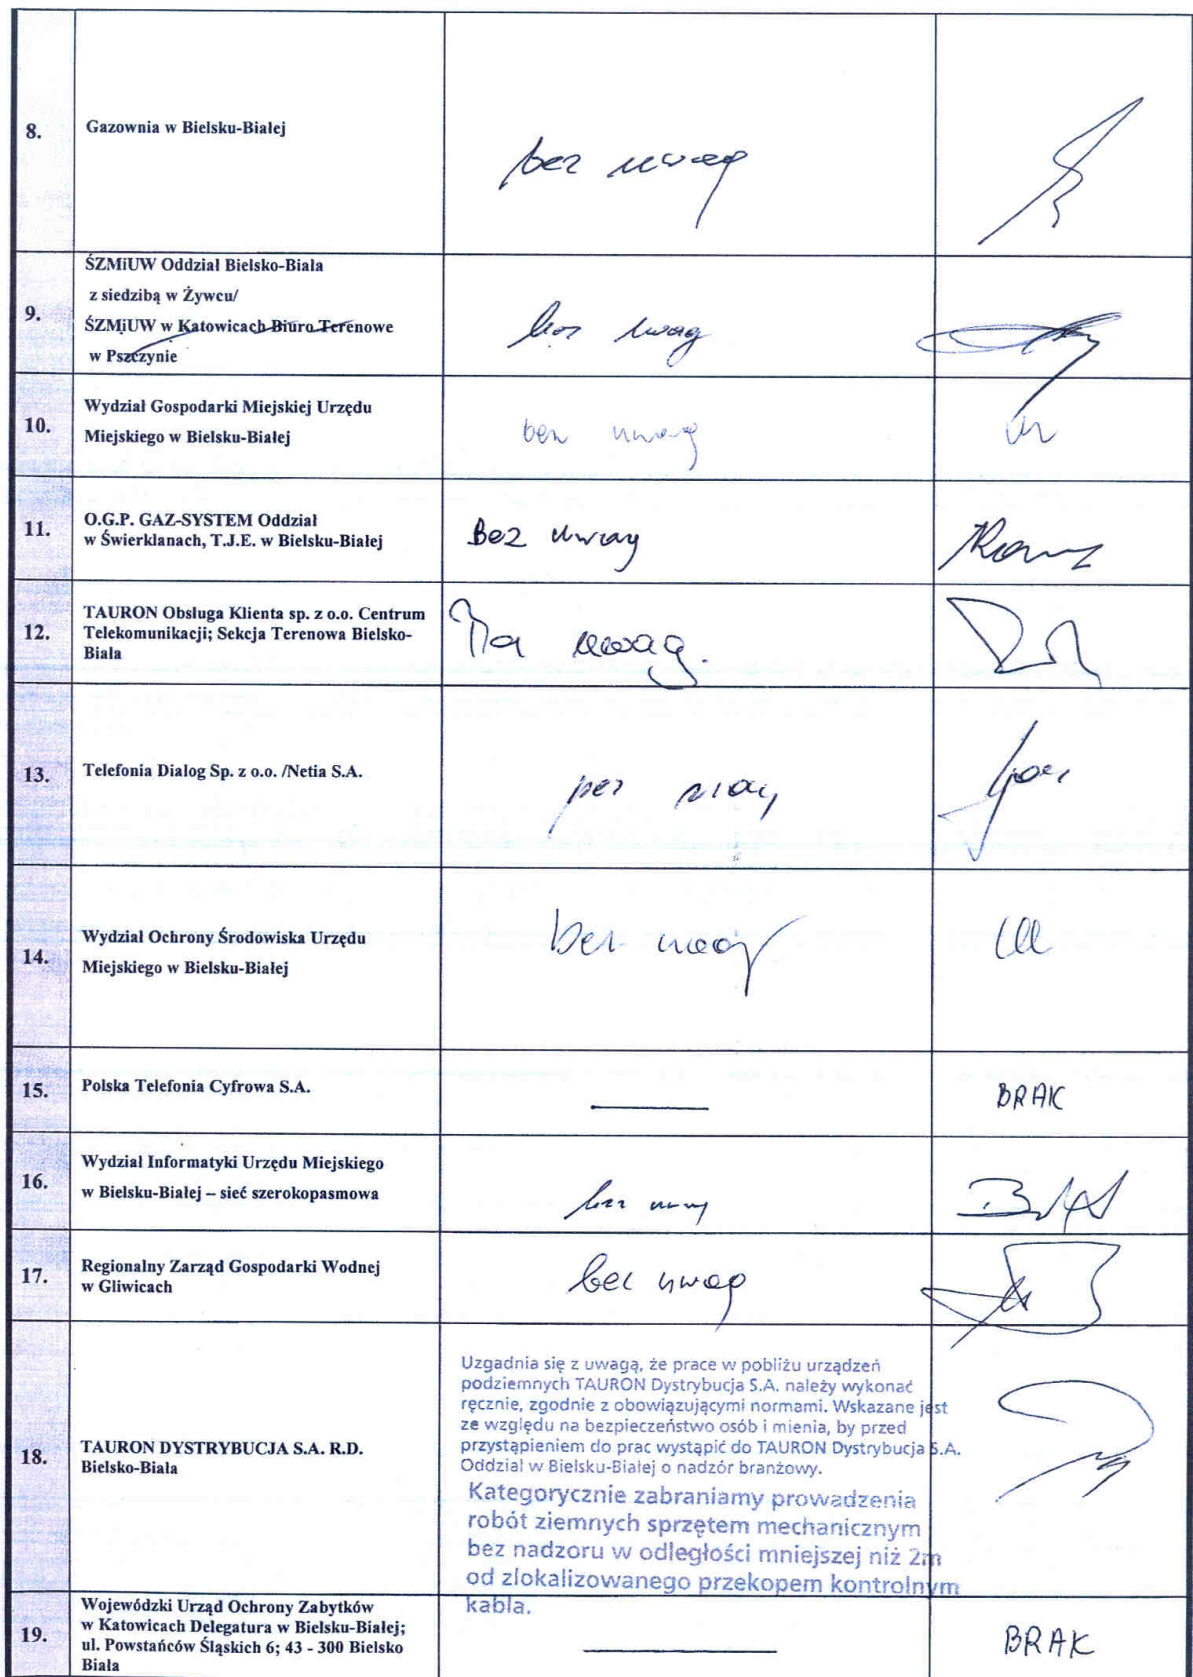 8.
Gazownia w Bielsku-Białej
bez uwag
9.
ŚZMiUW Oddział Bielsko-Biała
z siedzibą w Żywcu/
ŚZMiUW w Katowicach Biuro Terenowe
w Pszczynie
bez uwag
10.
Wydział Gospodarki Miejskiej Urzędu
Miejskiego w Bielsku-Białej
bez uwag
11.
O.G.P. GAZ-SYSTEM Oddział
w Świerklanach, T.J.E. w Bielsku-Białej
Bez uwag
12.
TAURON Obsługa Klienta sp. z o.o. Centrum
Telekomunikacji; Sekcja Terenowa Bielsko-
Biała
uwag.
13.
Telefonia Dialog Sp. z o.o. /Netia S.A.
bez uwag
14.
Wydział Ochrony Środowiska Urzędu
Miejskiego w Bielsku-Białej
bez uwag
15.
Polska Telefonia Cyfrowa S.A.
BRAK
16.
Wydział Informatyki Urzędu Miejskiego
w Bielsku-Białej – sieć szerokopasmowa
bez uwag
17.
Regionalny Zarząd Gospodarki Wodnej
w Gliwicach
bez uwag
18.
TAURON DYSTRYBUCJA S.A. R.D.
Bielsko-Biała
Uzgadnia się z uwagą, że prace w pobliżu urządzeń
podziemnych TAURON Dystrybucja S.A. należy wykonać
ręcznie, zgodnie z obowiązującymi normami. Wskazane jest
ze względu na bezpieczeństwo osób i mienia, by przed
przystąpieniem do prac wystąpić do TAURON Dystrybucja S.A.
Oddział w Bielsku-Białej o nadzór branżowy.
Kategorycznie zabraniamy prowadzenia
robót ziemnych sprzętem mechanicznym
bez nadzoru w odległości mniejszej niż 2m
od zlokalizowanego przekopem kontrolnym
kabla.
19.
Wojewódzki Urząd Ochrony Zabytków
w Katowicach Delegatura w Bielsku-Białej;
ul. Powstańców Śląskich 6; 43 - 300 Bielsko
Biała
BRAK